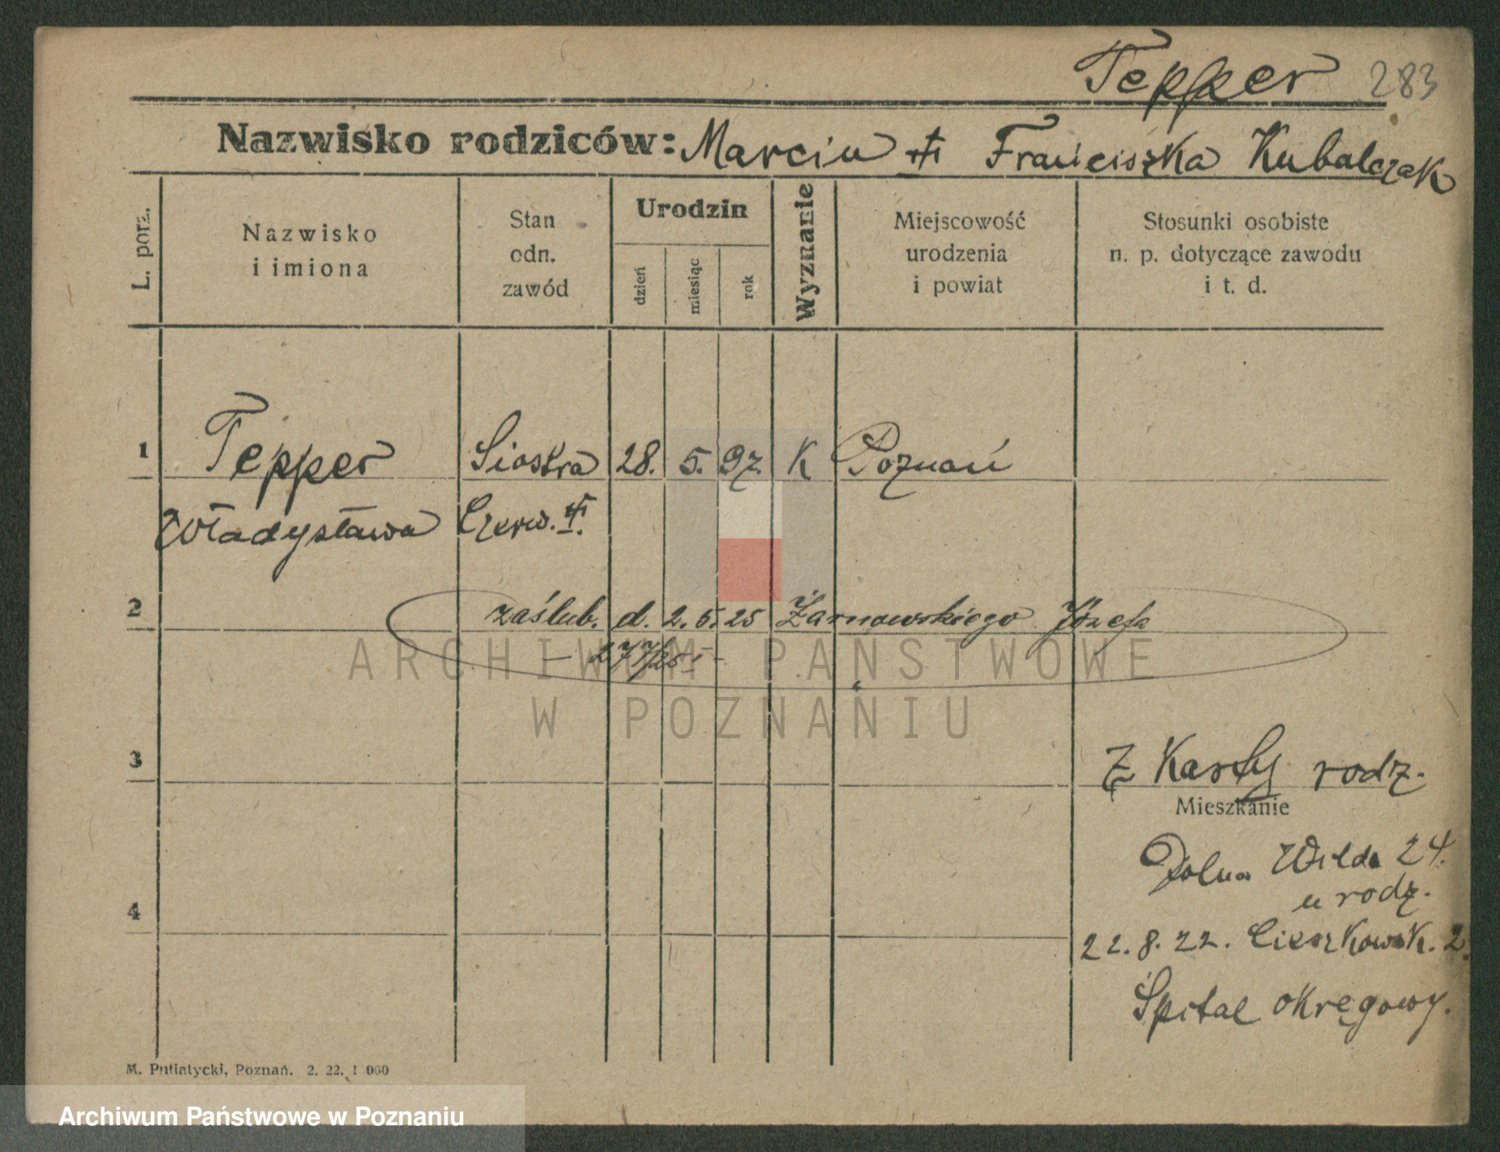 Tepper 283
Nazwisko rodziców: Marcin Franciszka Kubalczak
L. porz.
Nazwisko
i imiona
Stan
odn.
zawód
Urodzin
dzień
miesiąc
rok
Wyznanie
Miejscowość
urodzenia
i powiat
Stosunki osobiste
n. p. dotyczące zawodu
i t. d.
1 Tepper Siostra 28. 5. 97. K Poznań
Władysława Czerw.
2 zaślub. d. 2. 5. 25 Żarnowskiego Józefa
ARCHIWUM PAŃSTWOWE
W POZNANIU
3 Z Karty rodz.
Mieszkanie
Dolna Wilda 24.
u rodz.
4
22. 8. 22. Cieszkowsk. 2.
Szpital okręgowy.
M. Putiatycki, Poznań. 2. 22. 1 000
Archiwum Państwowe w Poznaniu